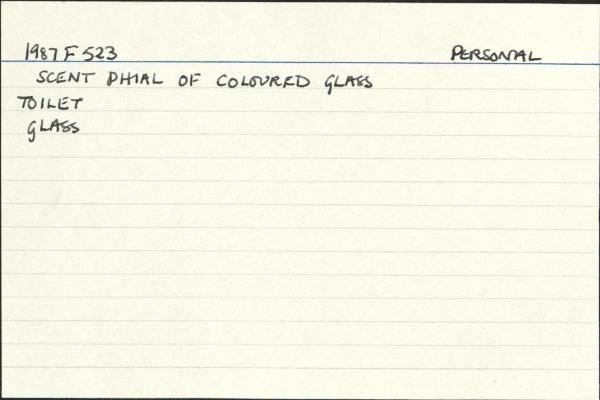 1987 F 523 PERSONAL
SCENT PHIAL OF COLOURED GLASS
TOILET
GLASS